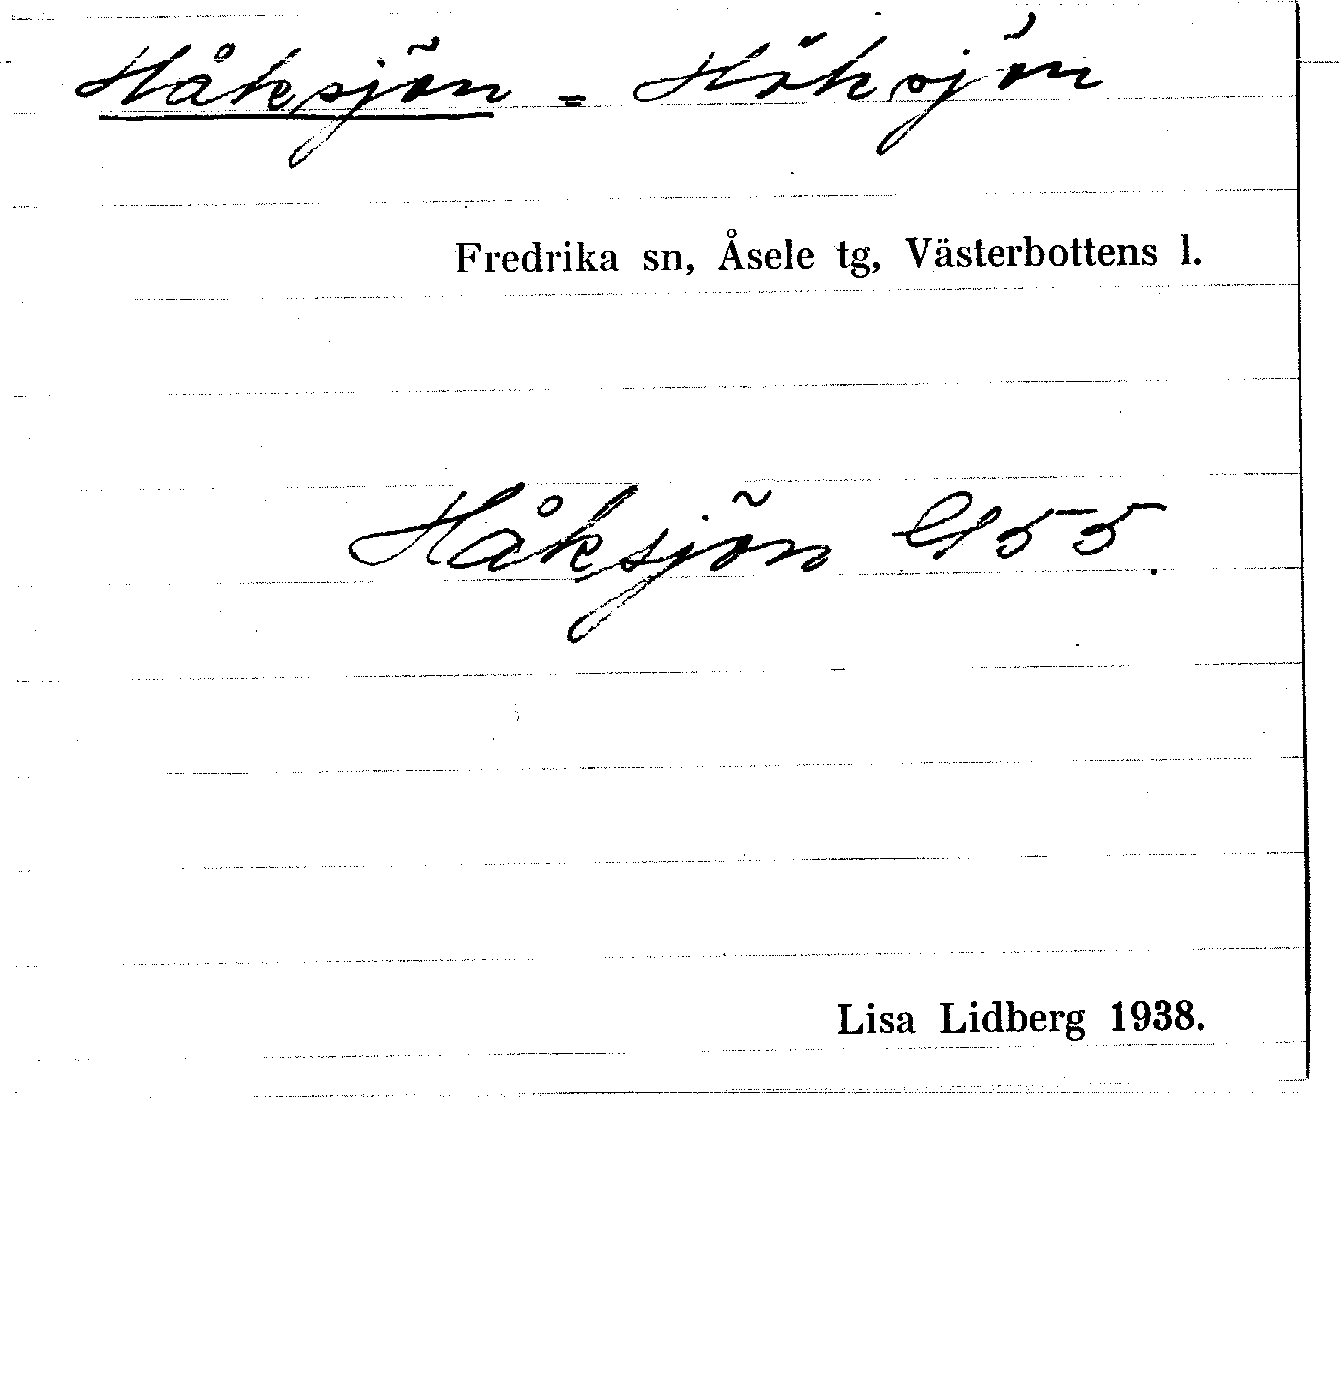 Håksjön = Höksjön
Fredrika sn, Åsele tg, Västerbottens l.
Håksjön G155.
Lisa Lidberg 1938.